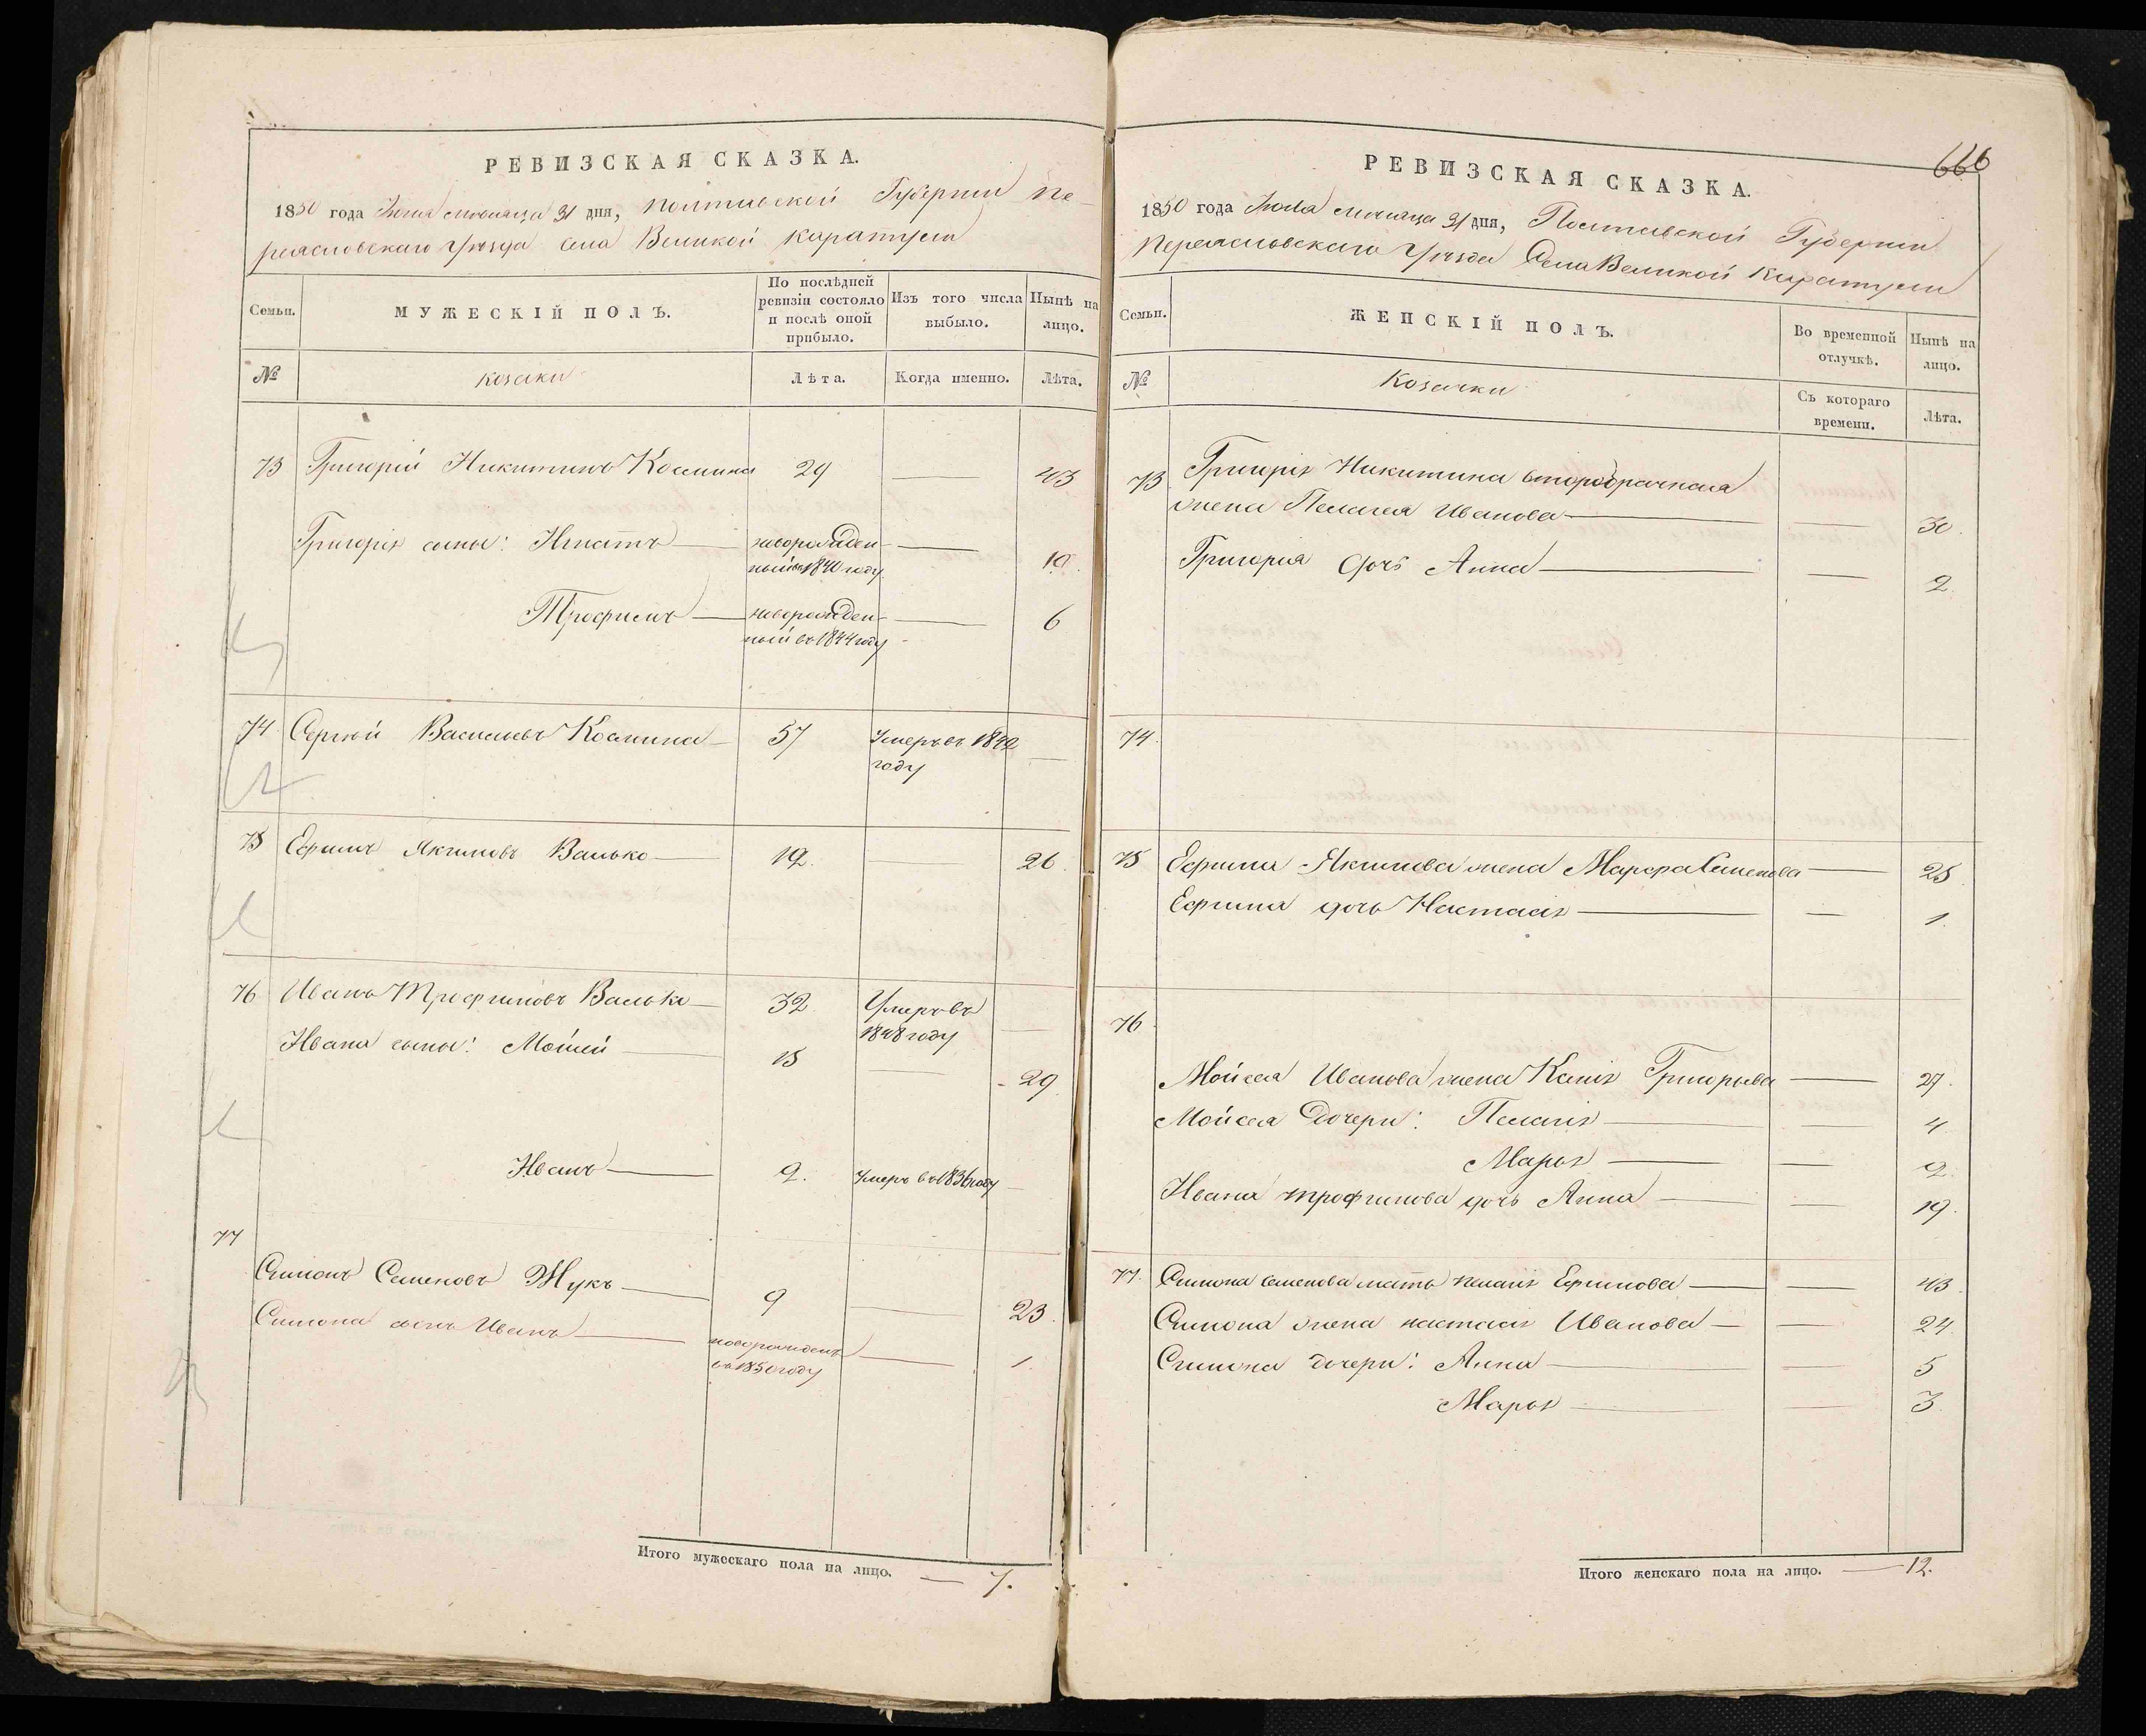 РЕВИЗСКАЯ СКАЗКА.
1850 года Июля месяца 31 дня, Полтавской Губернии Пе-
реясловскаго уѣзда села Великой Каратули
Семьи.
МУЖЕСКІЙ ПОЛЪ.
По послѣдней
ревизіи состояло
и послѣ оной
прибыло.
Изъ того числа
выбыло.
Нынѣ на
лицо.
№
козаки
Лѣта.
Когда именно.
Лѣта.
73 Григорій Никитинъ 29 43
Григорія сыны: Игнатъ новорожден- 10.
ный въ 1840 году
Трофимъ новорожден- 6
ный въ 1844 году
74 Сергѣй Васильевъ 57 Умеръ въ 1842
году
75 Ефимъ Якимовъ Валько 12. 26.
76 Иванъ Трофимовъ Валько 32 Умеръ въ
1848 году
Ивана сыны: Мойсей 15 29
Иванъ 9. Умеръ въ 1836 году
77
Симонъ Семеновъ Жукъ 9 23.
Симона сынъ Иванъ новорожденъ 1.
въ 1850 году
Итого мужескаго пола на лицо. 7.
666
РЕВИЗСКАЯ СКАЗКА.
1850 года Июля месяца 31 дня, Полтавской Губернии
Переясловскаго уѣзда Села Великой Каратули
Семьи.
ЖЕНСКІЙ ПОЛЪ.
Во временной
отлучкѣ.
Нынѣ на
лицо.
№
Козачки
Съ котораго
времени.
Лѣта.
73 Григорія Никитина второбрачная
жена Пелагея Иванова 30.
Григория дочь Анна 2
74.
75 Ефима Якимова жена Марфа Семенова 25.
Ефима дочь Настасія 1.
76.
Мойсея Иванова жена Григорьева 27.
Мойсея Дочери: Пелагія 4
Марья 2.
Ивана трофимова дочь Анна 19.
77. Симона семенова мать пелагія Ефимова 43.
Симона жена настасія Иванова 24.
Симона дочери: Анна 5
Марья 3
Итого женскаго пола на лицо. 12.